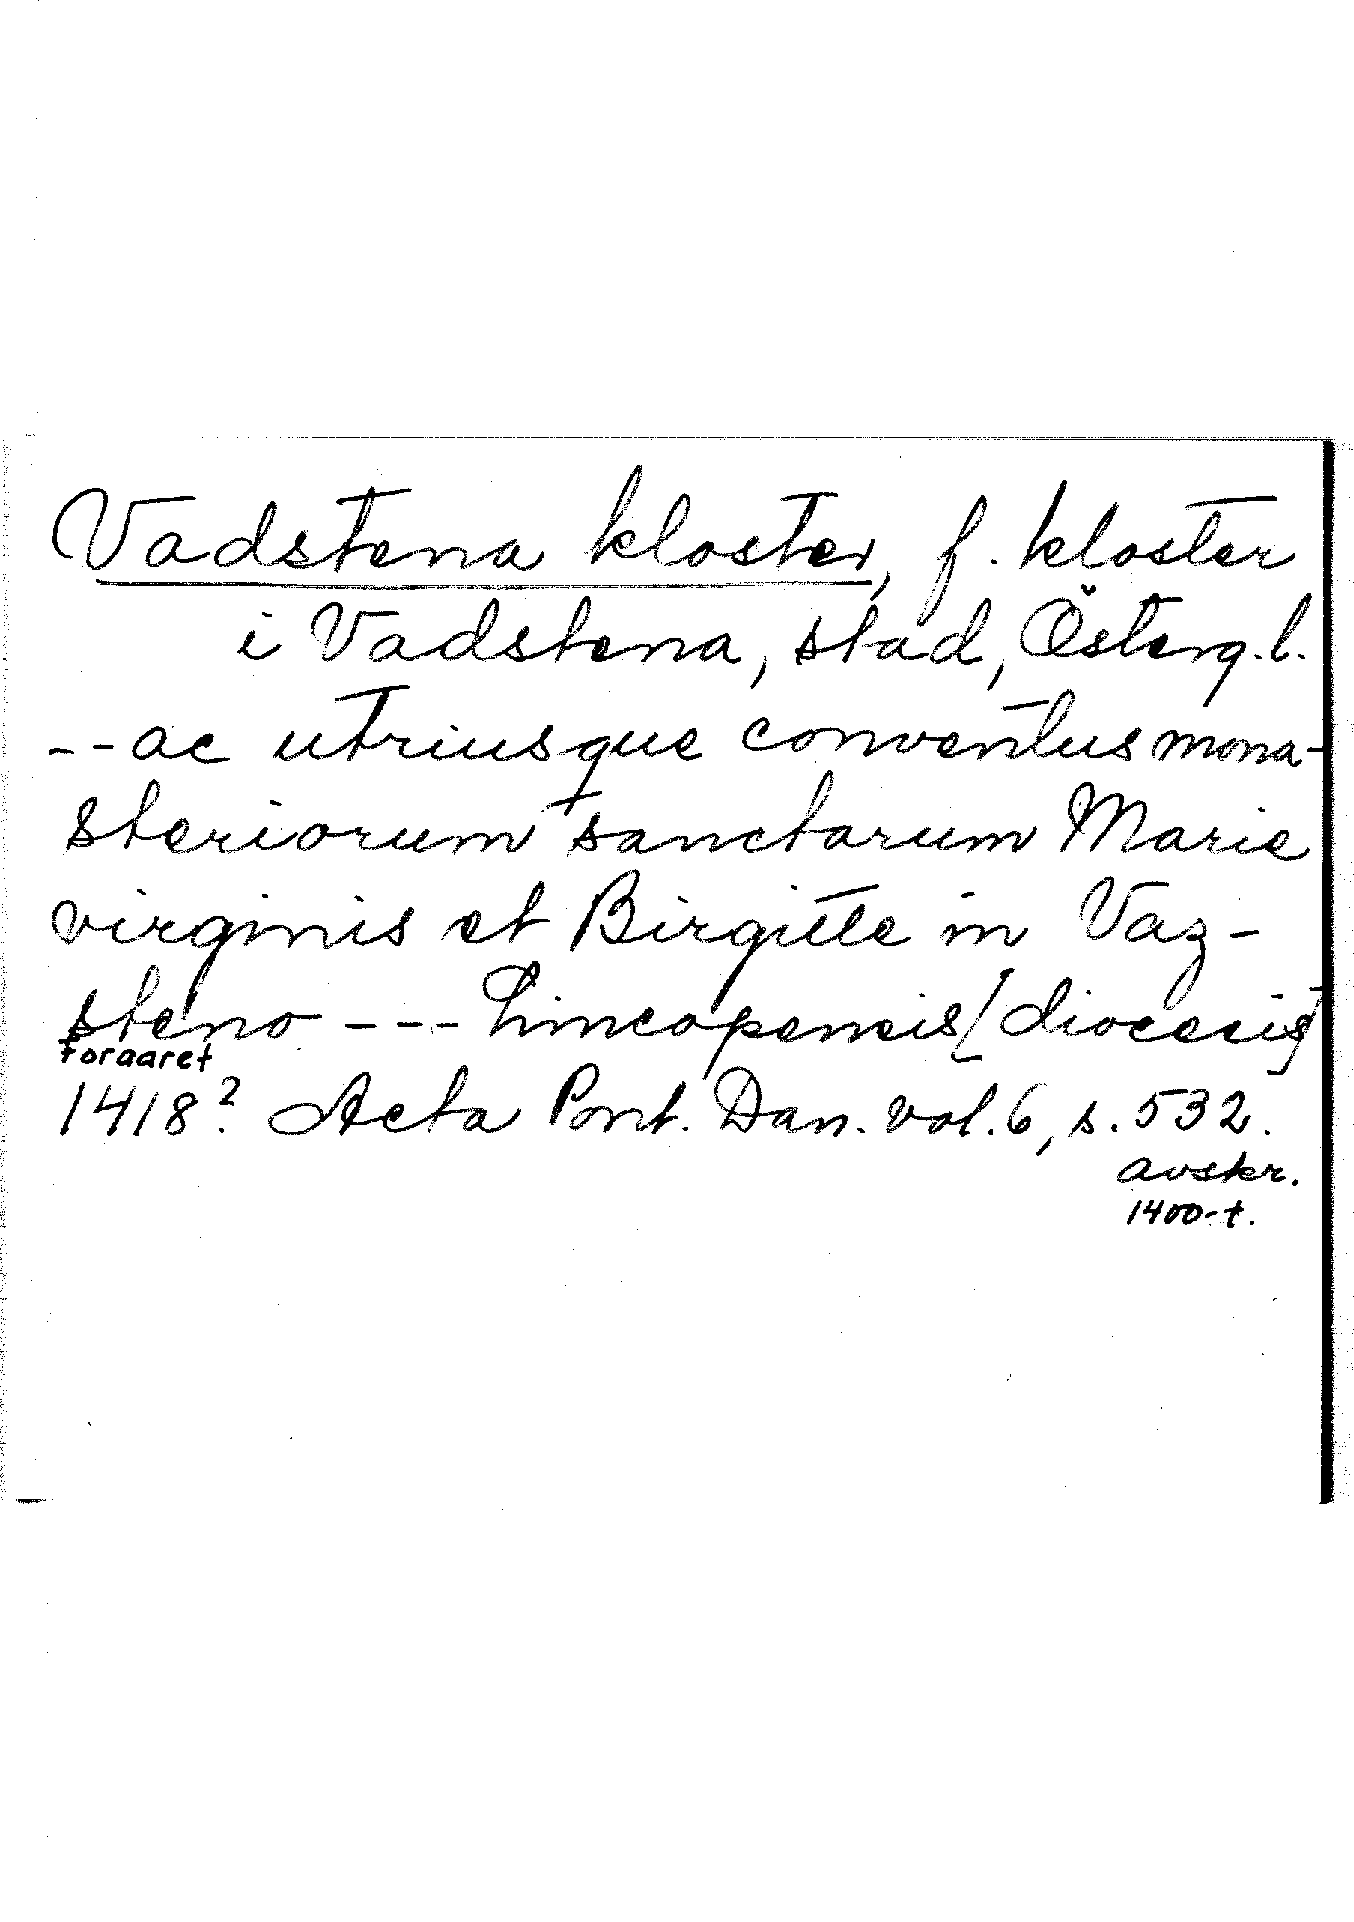 Vadstena kloster, f. kloster
i Vadstena, stad, Österg.l.
--ac utriusque conventus mona-
steriorum sanctarum Marie
virginis et Birgitte in Vaz-
steno --- Lincopensis [diocecis]
foraaret
1418? Acta Pont. Dan. vol. 6, s. 532.
avskr.
1400-t.